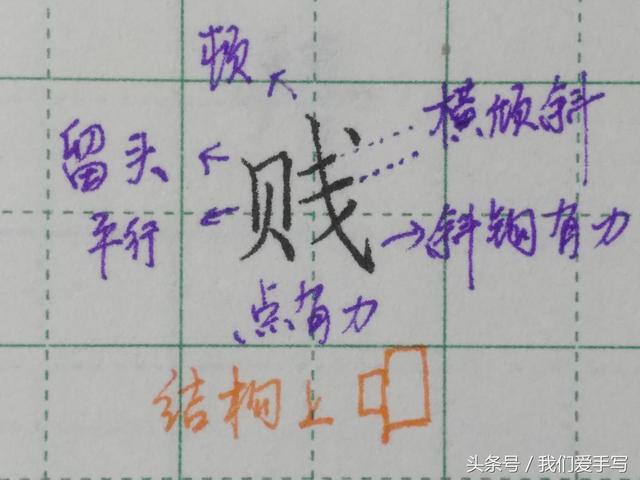 顿
横倾斜
留头
贱
平行
斜钩有力
点有力
结构上
头条号 / 我们爱手写